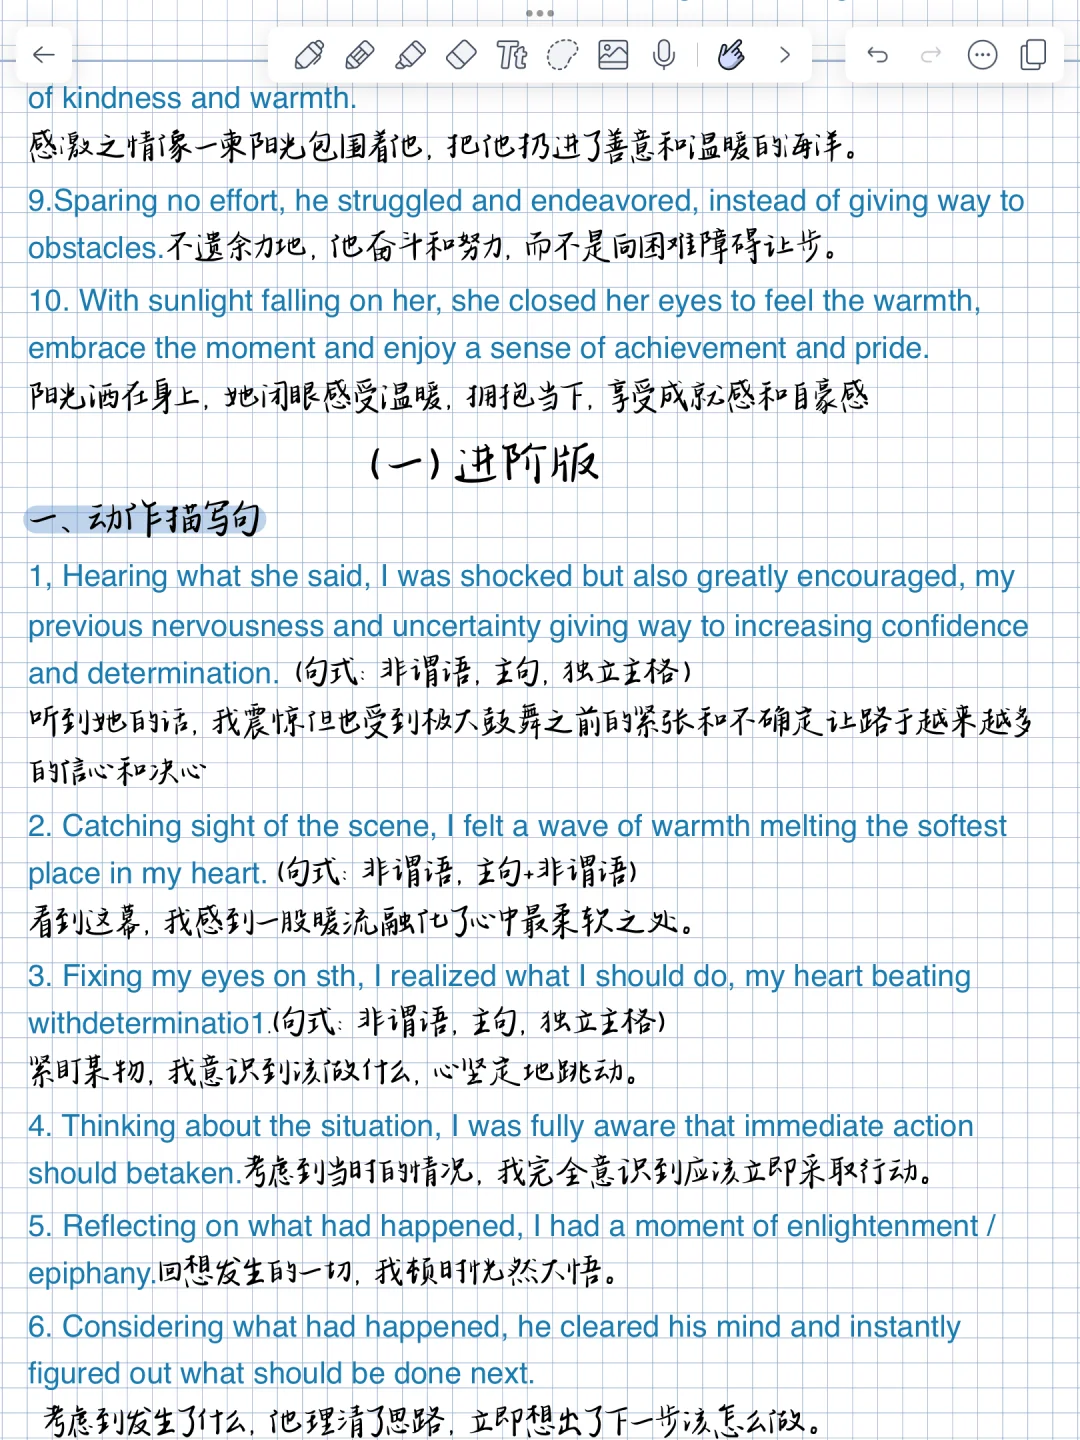 Tt
of kindness and warmth.
感激之情像一束阳光包围着他，把他扔进了善意和温暖的海洋。
9.Sparing no effort, he struggled and endeavored, instead of giving way to
obstacles.不遗余力地，他奋斗和努力，而不是向困难障碍让步。
10. With sunlight falling on her, she closed her eyes to feel the warmth,
embrace the moment and enjoy a sense of achievement and pride.
阳光洒在身上，她闭眼感受温暖，拥抱当下，享受成就感和自豪感
(一) 进阶版
一、动作描写句
1, Hearing what she said, I was shocked but also greatly encouraged, my
previous nervousness and uncertainty giving way to increasing confidence
and determination. (句式：非谓语，主句，独立主格)
听到她的话，我震惊但也受到极大鼓舞之前的紧张和不确定让路于越来越多
的信心和决心
2. Catching sight of the scene, I felt a wave of warmth melting the softest
place in my heart. (句式：非谓语，主句+非谓语)
看到这幕，我感到一股暖流融化了心中最柔软之处。
3. Fixing my eyes on sth, I realized what I should do, my heart beating
withdeterminatio1.(句式：非谓语，主句，独立主格)
紧盯某物，我意识到该做什么，心坚定地跳动。
4. Thinking about the situation, I was fully aware that immediate action
should betaken.考虑到当时的情况，我完全意识到应该立即采取行动。
5. Reflecting on what had happened, I had a moment of enlightenment /
epiphany.回想发生的一切，我顿时恍然大悟。
6. Considering what had happened, he cleared his mind and instantly
figured out what should be done next.
考虑到发生了什么，他理清了思路，立即想出了下一步该怎么做。